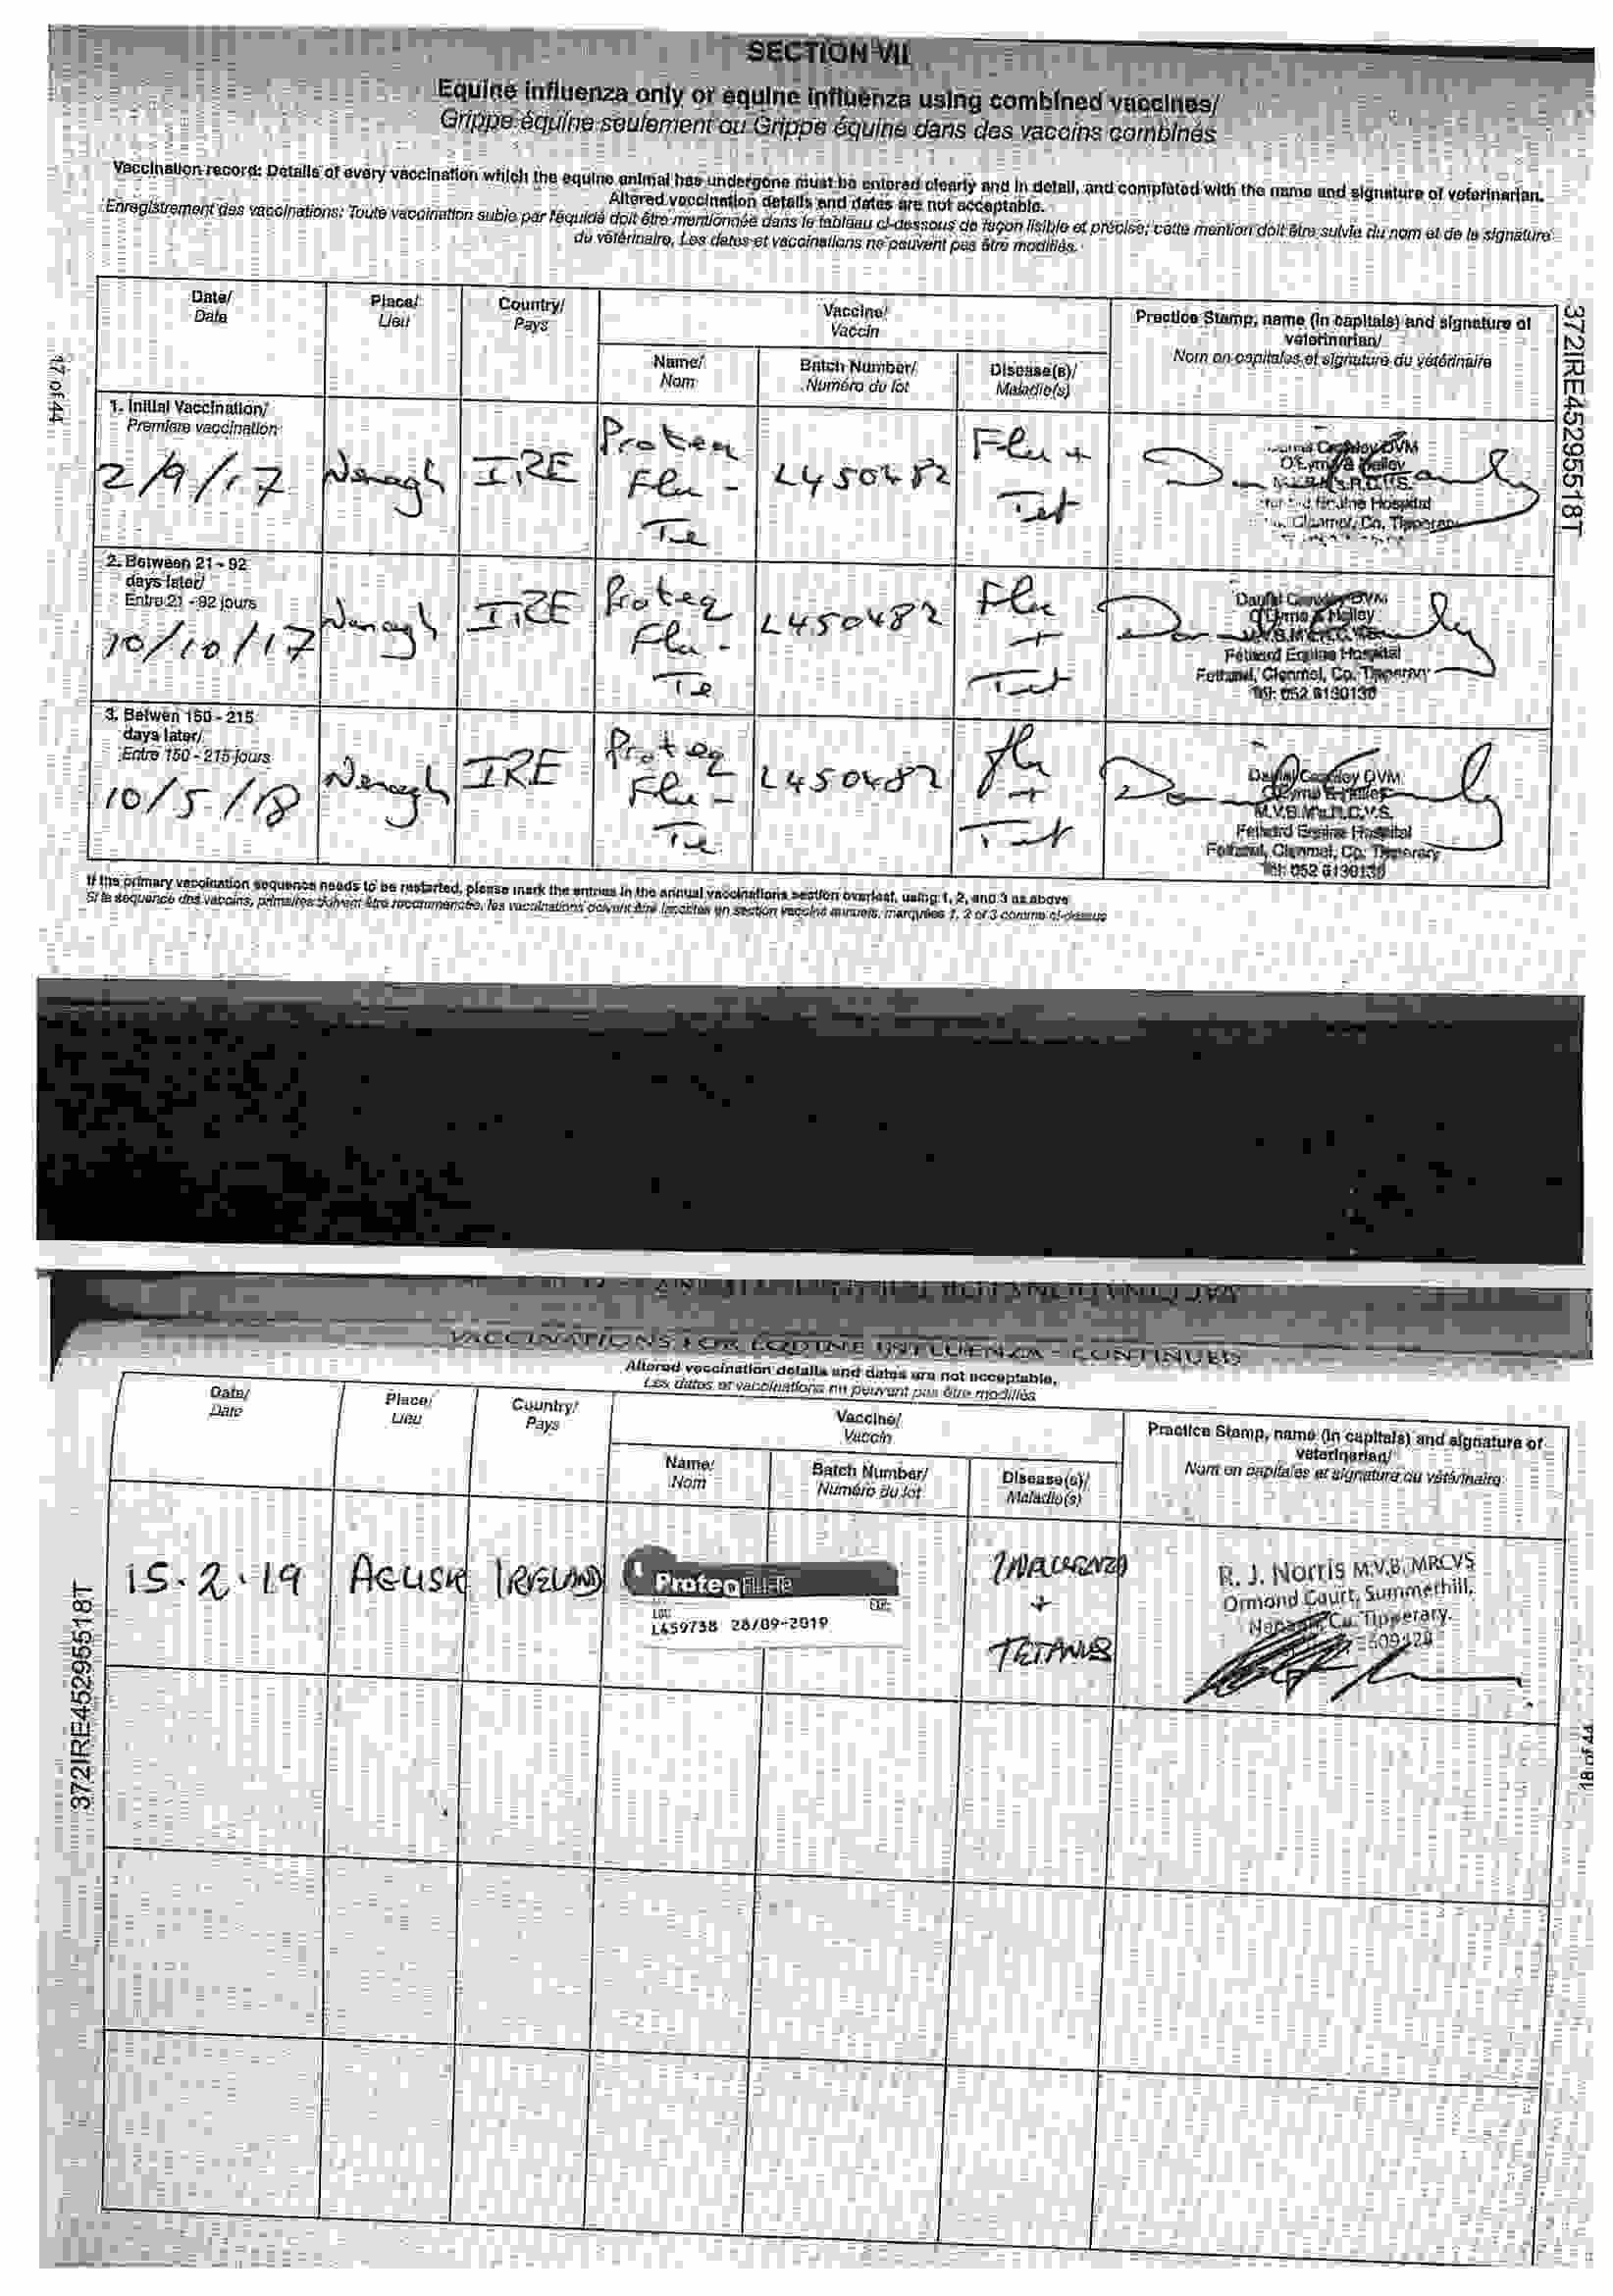 SECTION VII
Equine influenza only or equine influenza using combined vaccines/
Grippe équine seulement ou Grippe équine dans des vaccins combinés
Vaccination record: Details of every vaccination which the equine animal has undergone must be entered clearly and in detail, and completed with the name and signature of veterinarian.
Altered vaccination details and dates are not acceptable.
Enregistrement des vaccinations: Toute vaccination subie par l'équidé doit être mentionnée dans le tableau ci-dessous de façon lisible et précise; cette mention doit être suivie du nom et de la signature
du vétérinaire. Les dates et vaccinations ne peuvent pas être modifiés.
Date/
Date
Place/
Lieu
Country/
Pays
Vaccine/
Vaccin
Practice Stamp, name (in capitals) and signature of
veterinarian/
Nom en capitales et signature du vétérinaire
Name/
Nom
Batch Number/
Numéro du lot
Disease(s)/
Maladie(s)
17 of 44
372IRE45295518T
1. Initial Vaccination/
Premiere vaccination
2/9/17
Nenagh
IRE
Proteq
Flu -
Te
L450482
Flu +
Tet
Equine Hospital
Co. Tipperary
2. Between 21 - 92
days later/
Entre 21 - 92 jours
10/10/17
Nenagh
IRE
Proteq
Flu -
Te
L450482
Flu
+
Tet
Fethard Equine Hospital
Fethard, Clonmel, Co. Tipperary
Tel: 052 6130130
3. Betwen 150 - 215
days later/
Entre 150 - 215 jours
10/5/18
Nenagh
IRE
Proteq
Flu -
Te
L450482
flu
+
Tet
M.V.B.M.R.C.V.S.
Fethard Equine Hospital
Fethard, Clonmel, Co. Tipperary
Tel: 052 6130130
If the primary vaccination sequence needs to be restarted, please mark the entries in the annual vaccinations section overleaf, using 1, 2, and 3 as above
VACCINATIONS FOR EQUINE INFLUENZA - CONTINUED
Altered vaccination details and dates are not acceptable.
Les dates et vaccinations ne peuvent pas être modifiés
Date/
Date
Place/
Lieu
Country/
Pays
Vaccine/
Vaccin
Practice Stamp, name (in capitals) and signature of
veterinarian/
Nom en capitales et signature du vétérinaire
Name/
Nom
Batch Number/
Numéro du lot
Disease(s)/
Maladie(s)
372IRE45295518T
15.2.19
IRELAND
ProteqFlu-Te
LOT
EXP.
L459738 28/09-2019
INFLUENZA
+
TETANUS
R. J. Norris M.V.B, MRCVS
Ormond Court, Summerhill,
Nenagh, Co. Tipperary.
18 of 44